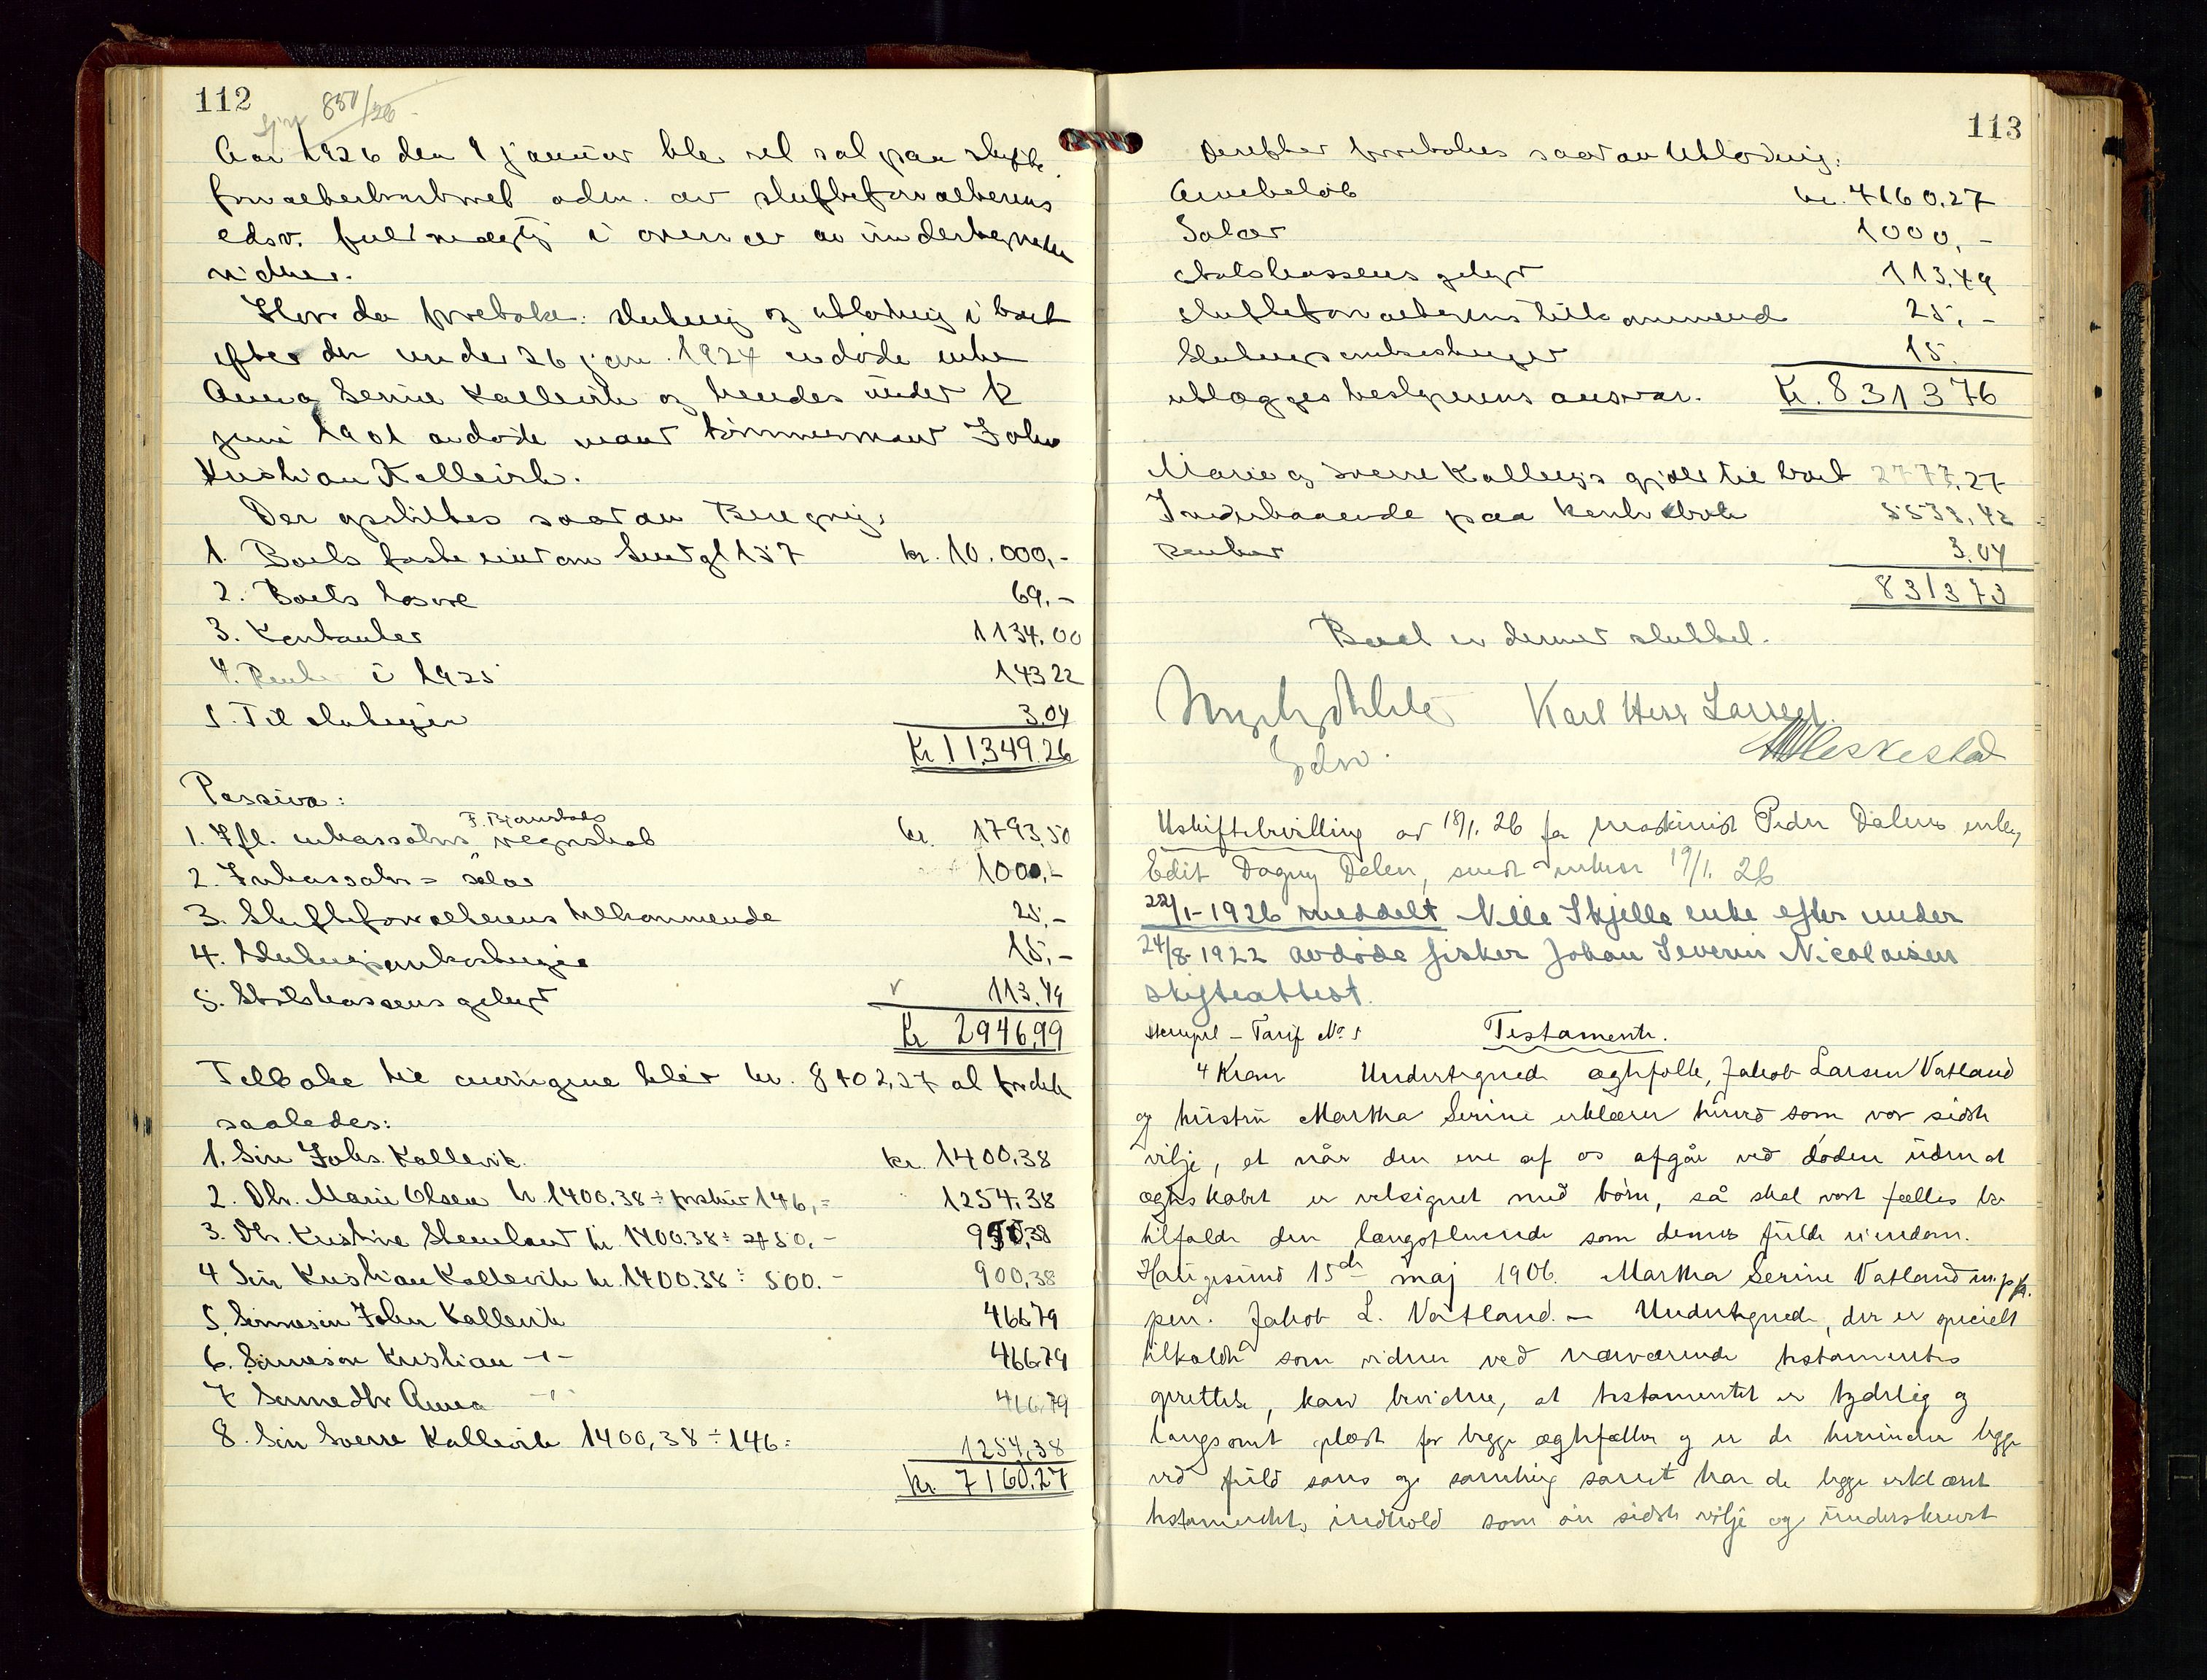 112
851/26
Aar 1926 den 9 januar ble ret sat paa skifte
forvalterkontoret adm. av skifteforvalterens
edsv. fuldmægtig i overvær av undertegnede
vidner.
Hvor da foretokes: slutning og utlodning i boet
efter den under 26 jan. 1924 avdøde enke
Anna Serine Kallevik og hendes under 12
juni 1901 avdøde mand tømmermand John
Kristian Kallevik.
Der opstilltes saadan Beregning:
1. Boets faste eiendom Smedgt 157 kr. 10.000,-
2. Boets løsøre 69.-
3. Kontanter 1134.00
4. Renter i 1925 143 22
5. Til slutningen 3.04
Kr 11.349.26
Passiva:
F. Bjørnstads
1. Ifl. inkassators regnskab kr. 1793,50
2. Inkassators salær 1000.-
3. Skifteforvalterens tilkommende 25,-
4. Slutningsomkostninger 15,-
5. Statskassens gebyr 113.49
Kr 2946.99
Tilbake til arvingene blir kr. 8402,27 at fordele
saaledes:
1. Søn Johs. Kallevik kr. 1400,38
2. Dtr. Marie Olsen kr. 1400.38 ÷ forskud 146,- 1254,38
3. Dtr. Kristine Stensland kr. 1400.38 ÷ 450.- 950,38
4 Søn Kristian Kallevik kr. 1400.38 ÷ 500.- 900,38
5. Sønnesøn John Kallevik 466.79
6. Sønnesøn Kristian -"- 466.79
7 Sønnedtr Anna -"- 466.79
8. Søn Sverre Kallevik 1400,38 ÷ 146: 1254,38
kr. 7160.27
113
Derefter foretokes saadan Utlodning:
Arvebeløb kr. 7160,27
Salær 1000,-
Statskassens gebyr 113,49
Skifteforvalterens tilkommende 25,-
Slutningsomkostninger 15.
utlægges bestyrerens ansvar. Kr. 8313 76
Marie og Sverre Kalleviks gjæld til boet 2777,27
Indestaaende paa kontrabok 5533,42
Renter 3.04
8313 73
Boet er dermed sluttet.
Karl Herr Larsen
Edsv. Heskestad
Uskiftebevilling av 18/1. 26 for maskinist Peder Dalens enke,
Edit Dagny Dalen, sendt enken 19/1. 26
22/1-1926 meddelt Nille Skjelle enke efter under
24/8-1922 avdøde fisker Johan Severin Nicolaisen
skifteattest.
Stempel - Tarif No 5 Testamente.
4 Kroner Undertegnede ægtefolk, Jakob Larsen Vatland
og hustru Martha Serine erklærer herved som vor sidste
vilje, at når den ene af os afgår ved døden uden at
ægteskabet er velsignet med børn, så skal vort fælles bo
tilfalde den længstlevende som dennes fulde eiendom.
Haugesund 15de maj 1906. Martha Serine Vatland m. p. p.
pen. Jakob L. Vatland. - Undertegnede, der er specielt
tilkaldte som vidner ved nærværende testamentes
oprettelse, kan bevidne, at testamentet er tydelig og
langsomt oplæst for begge ægtefæller og er de herunder begge
ved fuld sans og samling samt har de begge erklæret
testamentets indhold som sin sidste vilje og underskrevet